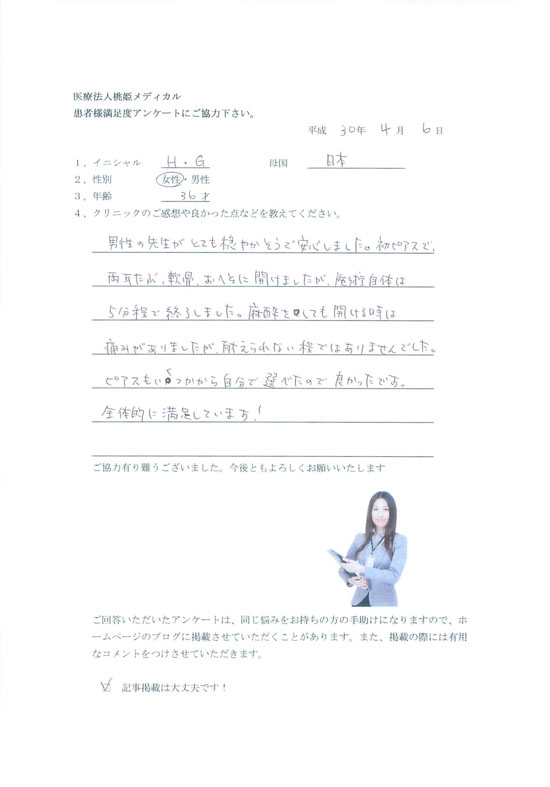 医療法人桃姫メディカル
患者様満足度アンケートにご協力下さい。
平成 30年 4月 6日
1、イニシャル H・G 母国 日本
2、性別 女性・男性
3、年齢 36才
4、クリニックのご感想や良かった点などを教えてください。
男性の先生がとても穏やかそうで安心しました。初ピアスで、
両耳たぶ、軟骨、おへそに開けましたが、施術自体は
5分程で終了しました。麻酔をしても開ける時は
痛みがありましたが、耐えられない程ではありませんでした。
ピアスもいくつかから自分で選べたので良かったです。
全体的に満足しています!
ご協力有り難うございました。今後ともよろしくお願いいたします
ご回答いただいたアンケートは、同じ悩みをお持ちの方の手助けになりますので、ホ
ームページのブログに掲載させていただくことがあります。また、掲載の際には有用
なコメントをつけさせていただきます。
記事掲載は大丈夫です!